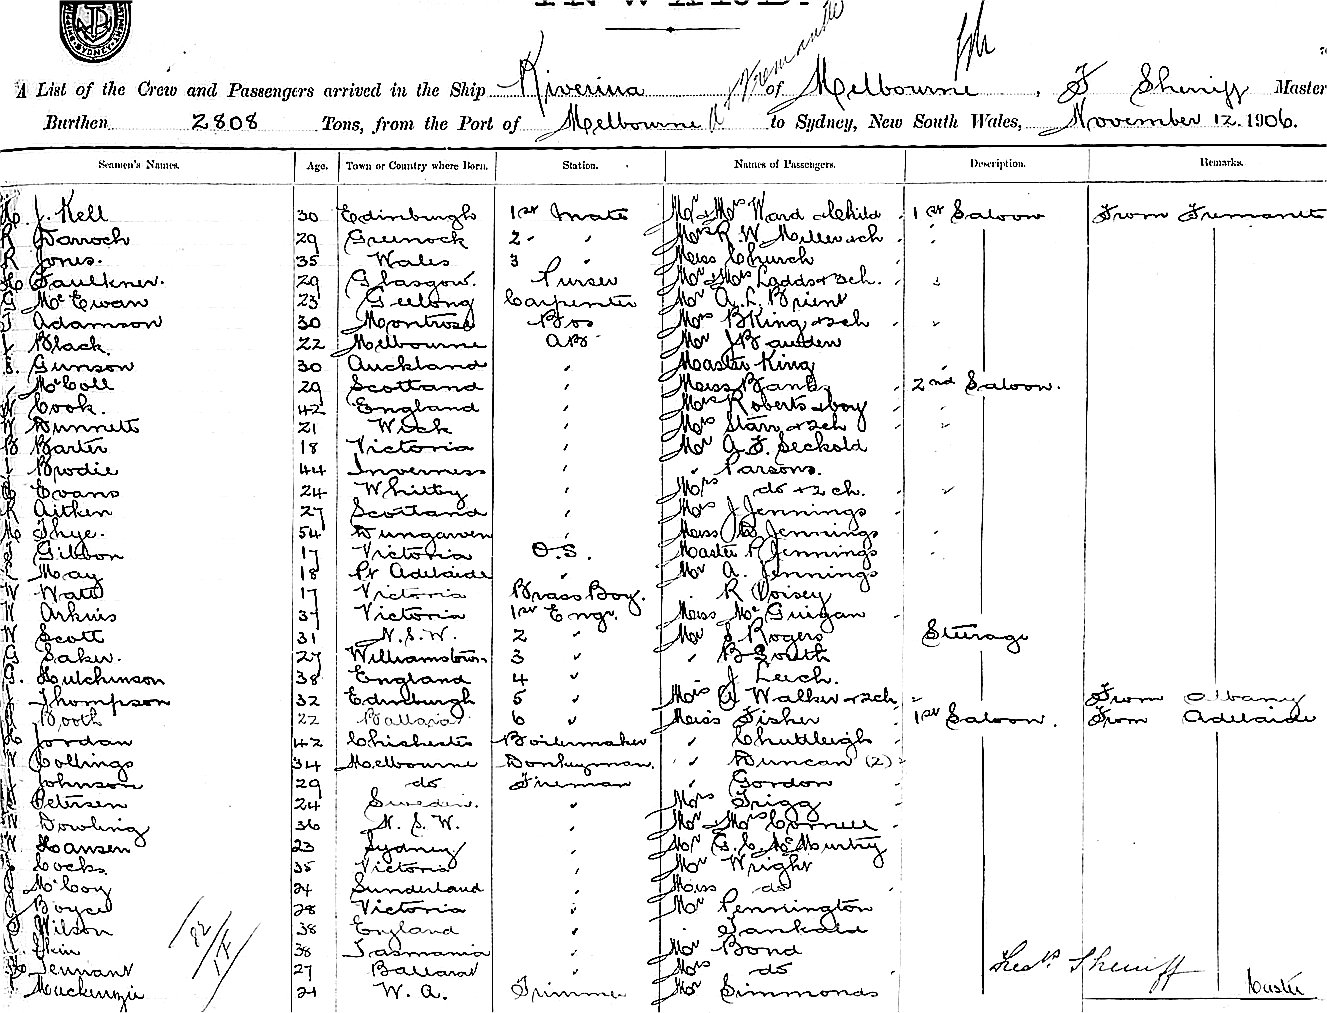 INWARD.
A List of the Crew and Passengers arrived in the Ship Riverina of Melbourne, F Sherriff Master
Fremantle
Burthen 2808 Tons, from the Port of Melbourne to Sydney, New South Wales, November 12. 1906.
Seamen's Names. Age. Town or Country where Born. Station. Names of Passengers. Description. Remarks.
J. Kell 30 Edinburgh 1st Mate Mr & Mrs Ward & Child 1st Saloon From Fremantle
R Darroch 29 Greenock 2 " Mrs R. W. Miller & ch "
R Jones. 35 Wales 3 Miss Church
Faulkner. 29 Glasgow. Purser Mr & Mrs Ladds & 2ch. "
G McEwan 23 Geelong Carpenter Mr A. L. Brient
Adamson 30 Montrose Bos Mrs B King & 2ch "
Black. 22 Melbourne AB Mr J Bawden
Gunson 30 Auckland " Master King "
McColl 29 Scotland " Miss Banks 2nd Saloon.
W Cook. 42 England " Mrs Roberts & boy "
W Dunnett 21 Wick " Mrs Starr & 2ch "
B Barter 18 Victoria " Mr A. F. Seckold
Brodie 44 Inverness " " Parsons.
Evans 24 Whitby " Mrs do & 2 ch. "
R Aitken 27 Scotland " Mrs J Jennings
Shye. 54 Dungarven " Miss Jennings "
Gibbon 17 Victoria O.S. Master Jennings "
May 18 Pt Adelaide " Mr A. Jennings
W Watt 17 Victoria Brass Boy. " R Voisey
W Arkins 37 Victoria 1st Engr. Miss McGuigan
W Scott 31 N.S.W. 2 " Mr S Rogers Steerage
G Saker. 27 Williamstown 3 " " B South
G. Hutchinson 38 England 4 " " J Leich.
Thompson 32 Edinburgh 5 " Mrs A Walker & 2ch " From Albany
Booth 22 Ballarat 6 " Miss Fisher 1st Saloon. From Adelaide
Jordan 42 Chichester Boilermaker " Chudleigh
Collings 34 Melbourne Donkeyman. " Duncan (2)
Johnson 29 do Fireman " Gordon
Petersen 24 Sweden. " Mrs Trigg
Dowling 36 N.S.W. " Mr & Mrs Cornell
W. Hansen 23 Sydney " Mr G. C. McMurtry
Cocks 35 Victoria " Mr Wright
McCoy 24 Sunderland " Miss do
Boyce 28 Victoria " Mr Pennington
Wilson 38 England " " Tankard
38 Tasmania " Mr Bond
Tennant 27 Ballarat " Mrs do
Mackenzie 21 W. A. Trimmer Mr Simmonds
Sherriff
Master